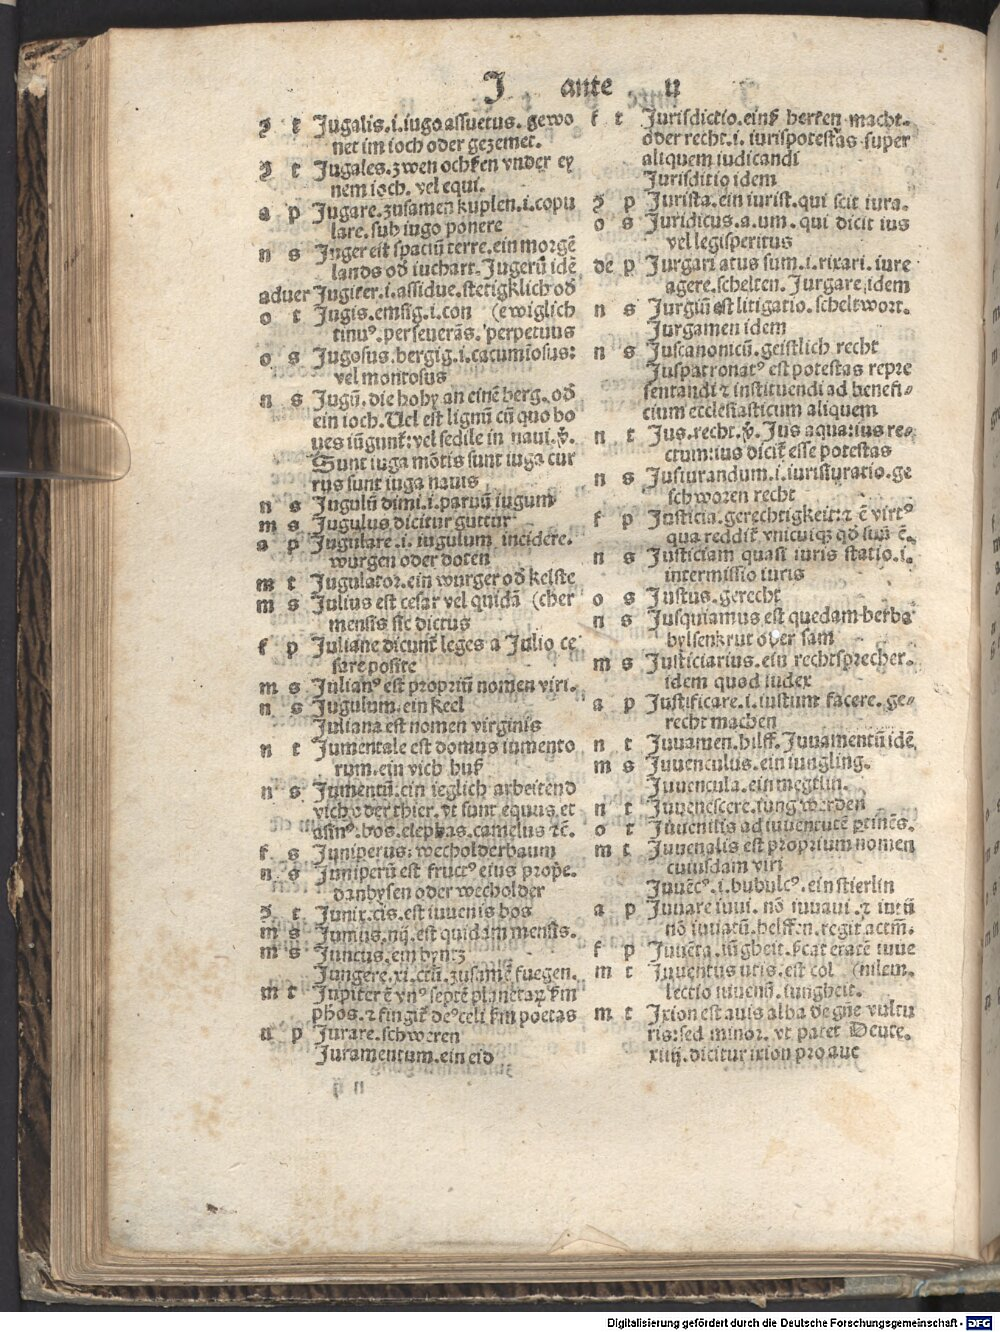 J ante u
ꝫ t Jugalis.i.iugo assuetus. gewo
net im ioch oder gezemet.
ꝫ t Jugales.zwen ochßen vnder ey
nem ioch. vel equi.
a p Jugare.zusamen kuplen.i.copu
lare.sub iugo ponere
n s Juger est spaciū terre.ein morgē
lands oď iuchart. Jugerū idē
aduer Jugiter.i.assidue.stetigklich oď
o t Jugis.emsig.i.con (ewiglich
tinuꝰ.perseuerãs.perpetuus
o s Jugosus.bergig.i.cacumiosus:
vel montosus
n s Jugū.die hohy an einē berg.oď
ein ioch. Uel est lignū cū quo bo
ues iūgunt̄: vel sedile in naui.ꝟ.
Sunt iuga mōtis sunt iuga cur
rus sunt iuga nauis
n s Jugulū dimi.i.paruū iugum
m s Jugulus dicitur guttur
a p Jugulare.i.iugulum incidere.
wurgen oder doten
m t Jugulator.ein wurger oď kelste
m s Julius est cesar vel quidā (cher
mensis sic dictus
f p Juliane dicunt̄ leges a Julio ce
sare posite
m s Julianꝰ est propriū nomen viri.
n s Jugulum.ein keel
Juliana est nomen virginis
n t Jumentale est domus iumento
rum.ein vich huß
n s Jumentū.ein ieglich arbeitend
vich oder thier.vt sunt equus et
asinꝰ.bos.elephas.camelus ⁊c̄.
f s Juniperus: wecholderbaum
n s Juniperū est fructꝰ eius prope.
danhysen oder wecholder
ꝫ t Junix.cis.est iuuenis bos
m s Junius.nij.est quidam mensis.
m s Juncus.ein byntz
Jungere.xi.ctū.zusamē fuegen.
m t Jupiter ē vnꝰ septē planetaꝝ ẜm
phos.⁊ fingit̄ deꝰ celi ẜm poetas
a p Jurare.schweren
Juramentum.ein eid
f t Jurisdictio.einß herren macht.
oder recht.i.iurispotestas super
aliquem iudicandi
Jurisditio idem
ꝫ p Jurista.ein iurist.qui scit iura.
o s Juridicus.a.um.qui dicit ius
vel legisperitus
de p Jurgari atus sum.i.rixari.iure
agere.schelten. Jurgare idem
n s Jurgiū est litigatio.scheltwort.
Jurgamen idem
n s Juscanonicū.geistlich recht
Juspatronatꝰ est potestas repre
sentandi ⁊ instituendi ad benefi-
cium ecclesiasticum aliquem
n t Jus.recht.ꝟ. Jus aqua:ius re-
ctum:ius dicit̄ esse potestas
n s Jusiurandum.i.iurisiuratio.ge
schworen recht
f p Justicia.gerechtigkeit:⁊ ē virtꝰ
qua reddit̄ vnicuiqꝫ qď suū ē.
n s Justiciam quasi iuris statio.i.
intermissio iuris
o s Justus.gerecht
n s Jusquiamus est quedam herba
bylsenkrut oder sam
m s Justiciarius.ein rechtsprecher.
idem quod iudex
a p Justificare.i.iustum facere.ge-
recht machen
n t Juuamen.hilff. Juuamentū idē
m s Juuenculus.ein iungling.
Juuencula.ein megtlin.
n t Juuenescere.iung werden
o t Juuenilis ad iuuentutē ptinēs.
m t Juuenalis est proprium nomen
cuiusdam viri
Juuēcꝰ.i.bubulcꝰ.ein stierlin
a p Juuare iuui. nō iuuaui.⁊ iutū
nō iuuatū.helffen.regit actm̄.
f p
m t Juuentus utis.est col (nilem.
lectio iuuenū.iungheit.
m t Jxion est auis alba de gn̄e vultu
ris:sed minor. vt patet Deute.
xiiij.dicitur ixion pro aue
n ij
Digitalisierung gefördert durch die Deutsche Forschungsgemeinschaft - DFG